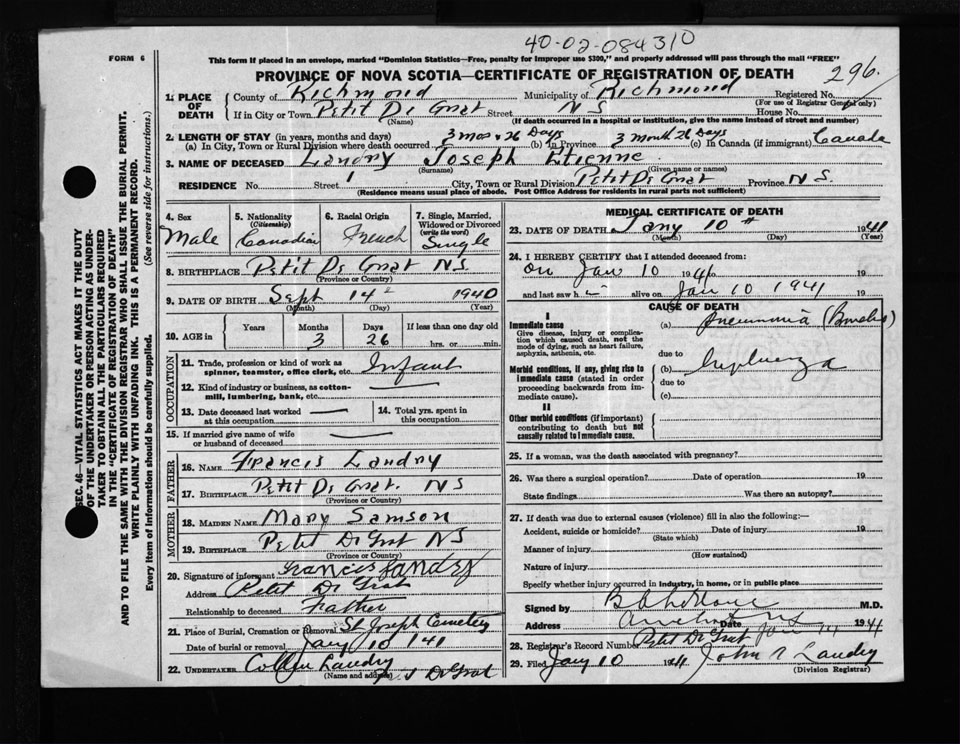 40-02-084310
FORM 6
This form if placed in an envelope, marked "Dominion Statistics—Free, penalty for improper use $300," and properly addressed will pass through the mail "FREE"
PROVINCE OF NOVA SCOTIA—CERTIFICATE OF REGISTRATION OF DEATH
296.
1. PLACE OF DEATH County of Richmond Municipality of Richmond Registered No.
(For use of Registrar General only)
If in City or Town Petit De Grat Street N S House No.
(Name) (If death occurred in a hospital or institution, give the name instead of street and number)
2. LENGTH OF STAY (in years, months and days)
(a) In City, Town or Rural Division where death occurred 3 mos & 26 Days (b) In Province 3 month 26 Days (c) In Canada (if immigrant) Canada
3. NAME OF DECEASED Landry Joseph Etienne
(Surname) (Given name or names)
RESIDENCE No. Street 1 City, Town or Rural Division Petit De Grat Province N S.
(Residence means usual place of abode. Post Office Address for residents in rural parts not sufficient)
4. Sex Male
5. Nationality (Citizenship) Canadian
6. Racial Origin French
7. Single, Married, Widowed or Divorced (write the word) Single
8. BIRTHPLACE Petit De Grat N S.
(Province or Country)
9. DATE OF BIRTH Sept 14 1940
(Month) (Day) (Year)
10. AGE in Years Months 3 Days 26 If less than one day old hrs. or min.
OCCUPATION
11. Trade, profession or kind of work as spinner, teamster, office clerk, etc. Infant
12. Kind of industry or business, as cotton-mill, lumbering, bank, etc.
13. Date deceased last worked at this occupation
14. Total yrs. spent in this occupation
15. If married give name of wife or husband of deceased
FATHER
16. NAME Francis Landry
17. BIRTHPLACE Petit De Grat. N S
(Province or Country)
MOTHER
18. MAIDEN NAME Mary Samson
19. BIRTHPLACE Petit De Grat N S
(Province or Country)
20. Signature of informant Francis Landry
Address Petit De Grat
Relationship to deceased Father
21. Place of Burial, Cremation or Removal St Joseph Cemetery
Date of burial or removal Jany 10 1941
22. UNDERTAKER Landry De Grat
(Name and address)
MEDICAL CERTIFICATE OF DEATH
23. DATE OF DEATH Jany 10th 1941
(Month) (Day) (Year)
24. I HEREBY CERTIFY that I attended deceased from:
on Jan 10 194 19
and last saw h alive on Jan 10 1941 19
CAUSE OF DEATH
I
Immediate cause
Give disease, injury or complication which caused death, not the mode of dying, such as heart failure, asphyxia, asthenia, etc.
(a) Pneumonia
due to
Morbid conditions, if any, giving rise to immediate cause (stated in order proceeding backwards from immediate cause).
(b) Influenza
due to
(c)
II
Other morbid conditions (if important) contributing to death but not causally related to immediate cause.
25. If a woman, was the death associated with pregnancy?
26. Was there a surgical operation? Date of operation 19
State findings Was there an autopsy?
27. If death was due to external causes (violence) fill in also the following:—
Accident, suicide or homicide? Date of injury 19
(State which)
Manner of injury
(How sustained)
Nature of injury
Specify whether injury occurred in industry, in home, or in public place
Signed by M.D.
Address Date Jan 1941
28. Registrar's Record Number Petit De Grat
29. Filed Jany 10 1941 John Landry
(Division Registrar)
SEC. 46—VITAL STATISTICS ACT MAKES IT THE DUTY
OF THE UNDERTAKER OR PERSON ACTING AS UNDER-
TAKER TO OBTAIN ALL THE PARTICULARS REQUIRED
IN THE "CERTIFICATE OF REGISTRATION OF DEATH"
AND TO FILE THE SAME WITH THE DIVISION REGISTRAR WHO SHALL ISSUE THE BURIAL PERMIT.
WRITE PLAINLY WITH UNFADING INK. THIS IS A PERMANENT RECORD.
Every item of information should be carefully supplied. (See reverse side for instructions.)